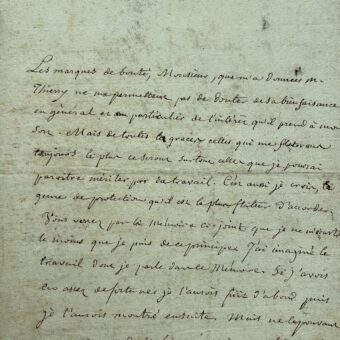 Les marques de bonté, Monsieur, que m'a données M.
Thierry ne me permettent pas de douter de sa bienfaisance
en général et en particulier de l'intérêt qu'il prend à mon
sort. Mais de toutes les graces celles qui me flatteront
toujours le plus ce seront surtout celles que je pourrai
paroitre mériter par du travail. C'est aussi je crois, le
genre de protection qu'il est le plus flatté d'accorder.
Vous verrez par le mémoire ci-joint que je ne m'écarte
le moins que je puis de ce principe. J'ai imaginé le
travail dont je parle dans ce Mémoire. Si j'avois
eu assez de fortune je l'aurois fait d'abord puis
je l'aurois montré ensuite. Mais ne le pouvant